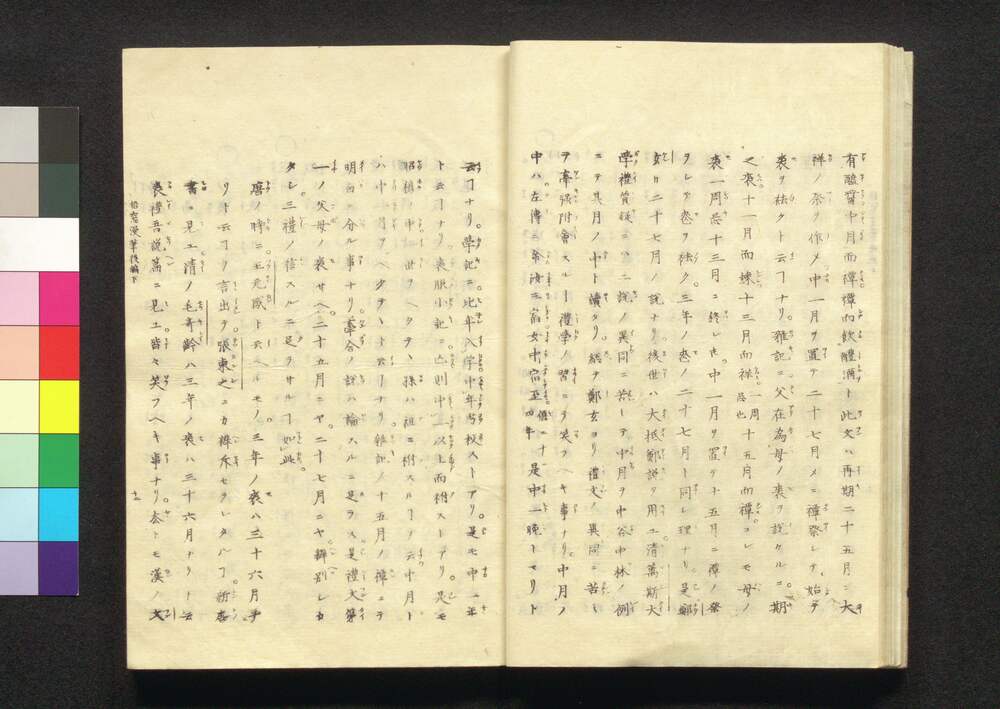 有醢醤中月而禫禫而飲醴酒ト此文ハ再期二十五月ニ大
祥ノ祭ヲ作メ中一月ヲ置テ二十七月メニ禫祭レテ始テ
喪ヲ祛クト云フナリ。雜記ニ父在為母ノ喪ヲ説ケルニ。期
之喪十一月而練十三月而祥一周忌也十五月而禫。コレモ母ノ
喪一周忌十三月ニ終レ𪜈中一月ヲ置ヲ十五月ニ禫ノ祭
ヲレテ喪ヲ祛ク。三年ノ喪ノ二十七月ト同レ理ナリ。是鄭
玄カ二十七月ノ説ナリ。後世ハ大抵鄭説ヲ用ユ。清萬斯大
學禮質疑ニ二説ノ異同ニ苦レテ中月ヲ中谷中林ノ例
ニテ其月ノ中ト讀タリ。總テ鄭玄ヨリ禮文ノ異同ニ苦レ
テ牽強附會スルー禮學ノ習ニテ笑フヘキ事ナリ。中月ノ
中ハ左傳ニ
云フナリ。學記ニ比年入学中年考校ストアリ。是モ中一年
ト云フナリ。喪服小記ニ亡則中一以上而祔ストアリ。是モ
昭穆ノ中一世ヲヘタテ、孫ハ祖ニ祔スルフヲ云中月ト
ハ中一月ヲヘタヲ、ト云フナリ
明白ニ分ル事ナリ。牽合ノ説ハ論スルニ足ラス。是禮文第
一ノ父母ノ喪サヘ二十五月ニヤ。二十七月ニヤ。辨別レカ
タレ。三禮ノ信スルニ足ラサルフ如此
唐ノ時ニ王元感ト云ヘルモノ。三年ノ喪ハ三十六月ナ
リト云フヲ言出ヲ張柬之ニカ裨斥セラレタルフ。新唐
書ニ見ユ。清ノ毛奇齡ハ三年ノ喪ハ三十六月ナリー云
喪禮吾説篇ニ見ユ。皆々笑フヘキ事ナリ。奈トモ漢ノ文
梧窓漫筆後編下
十二